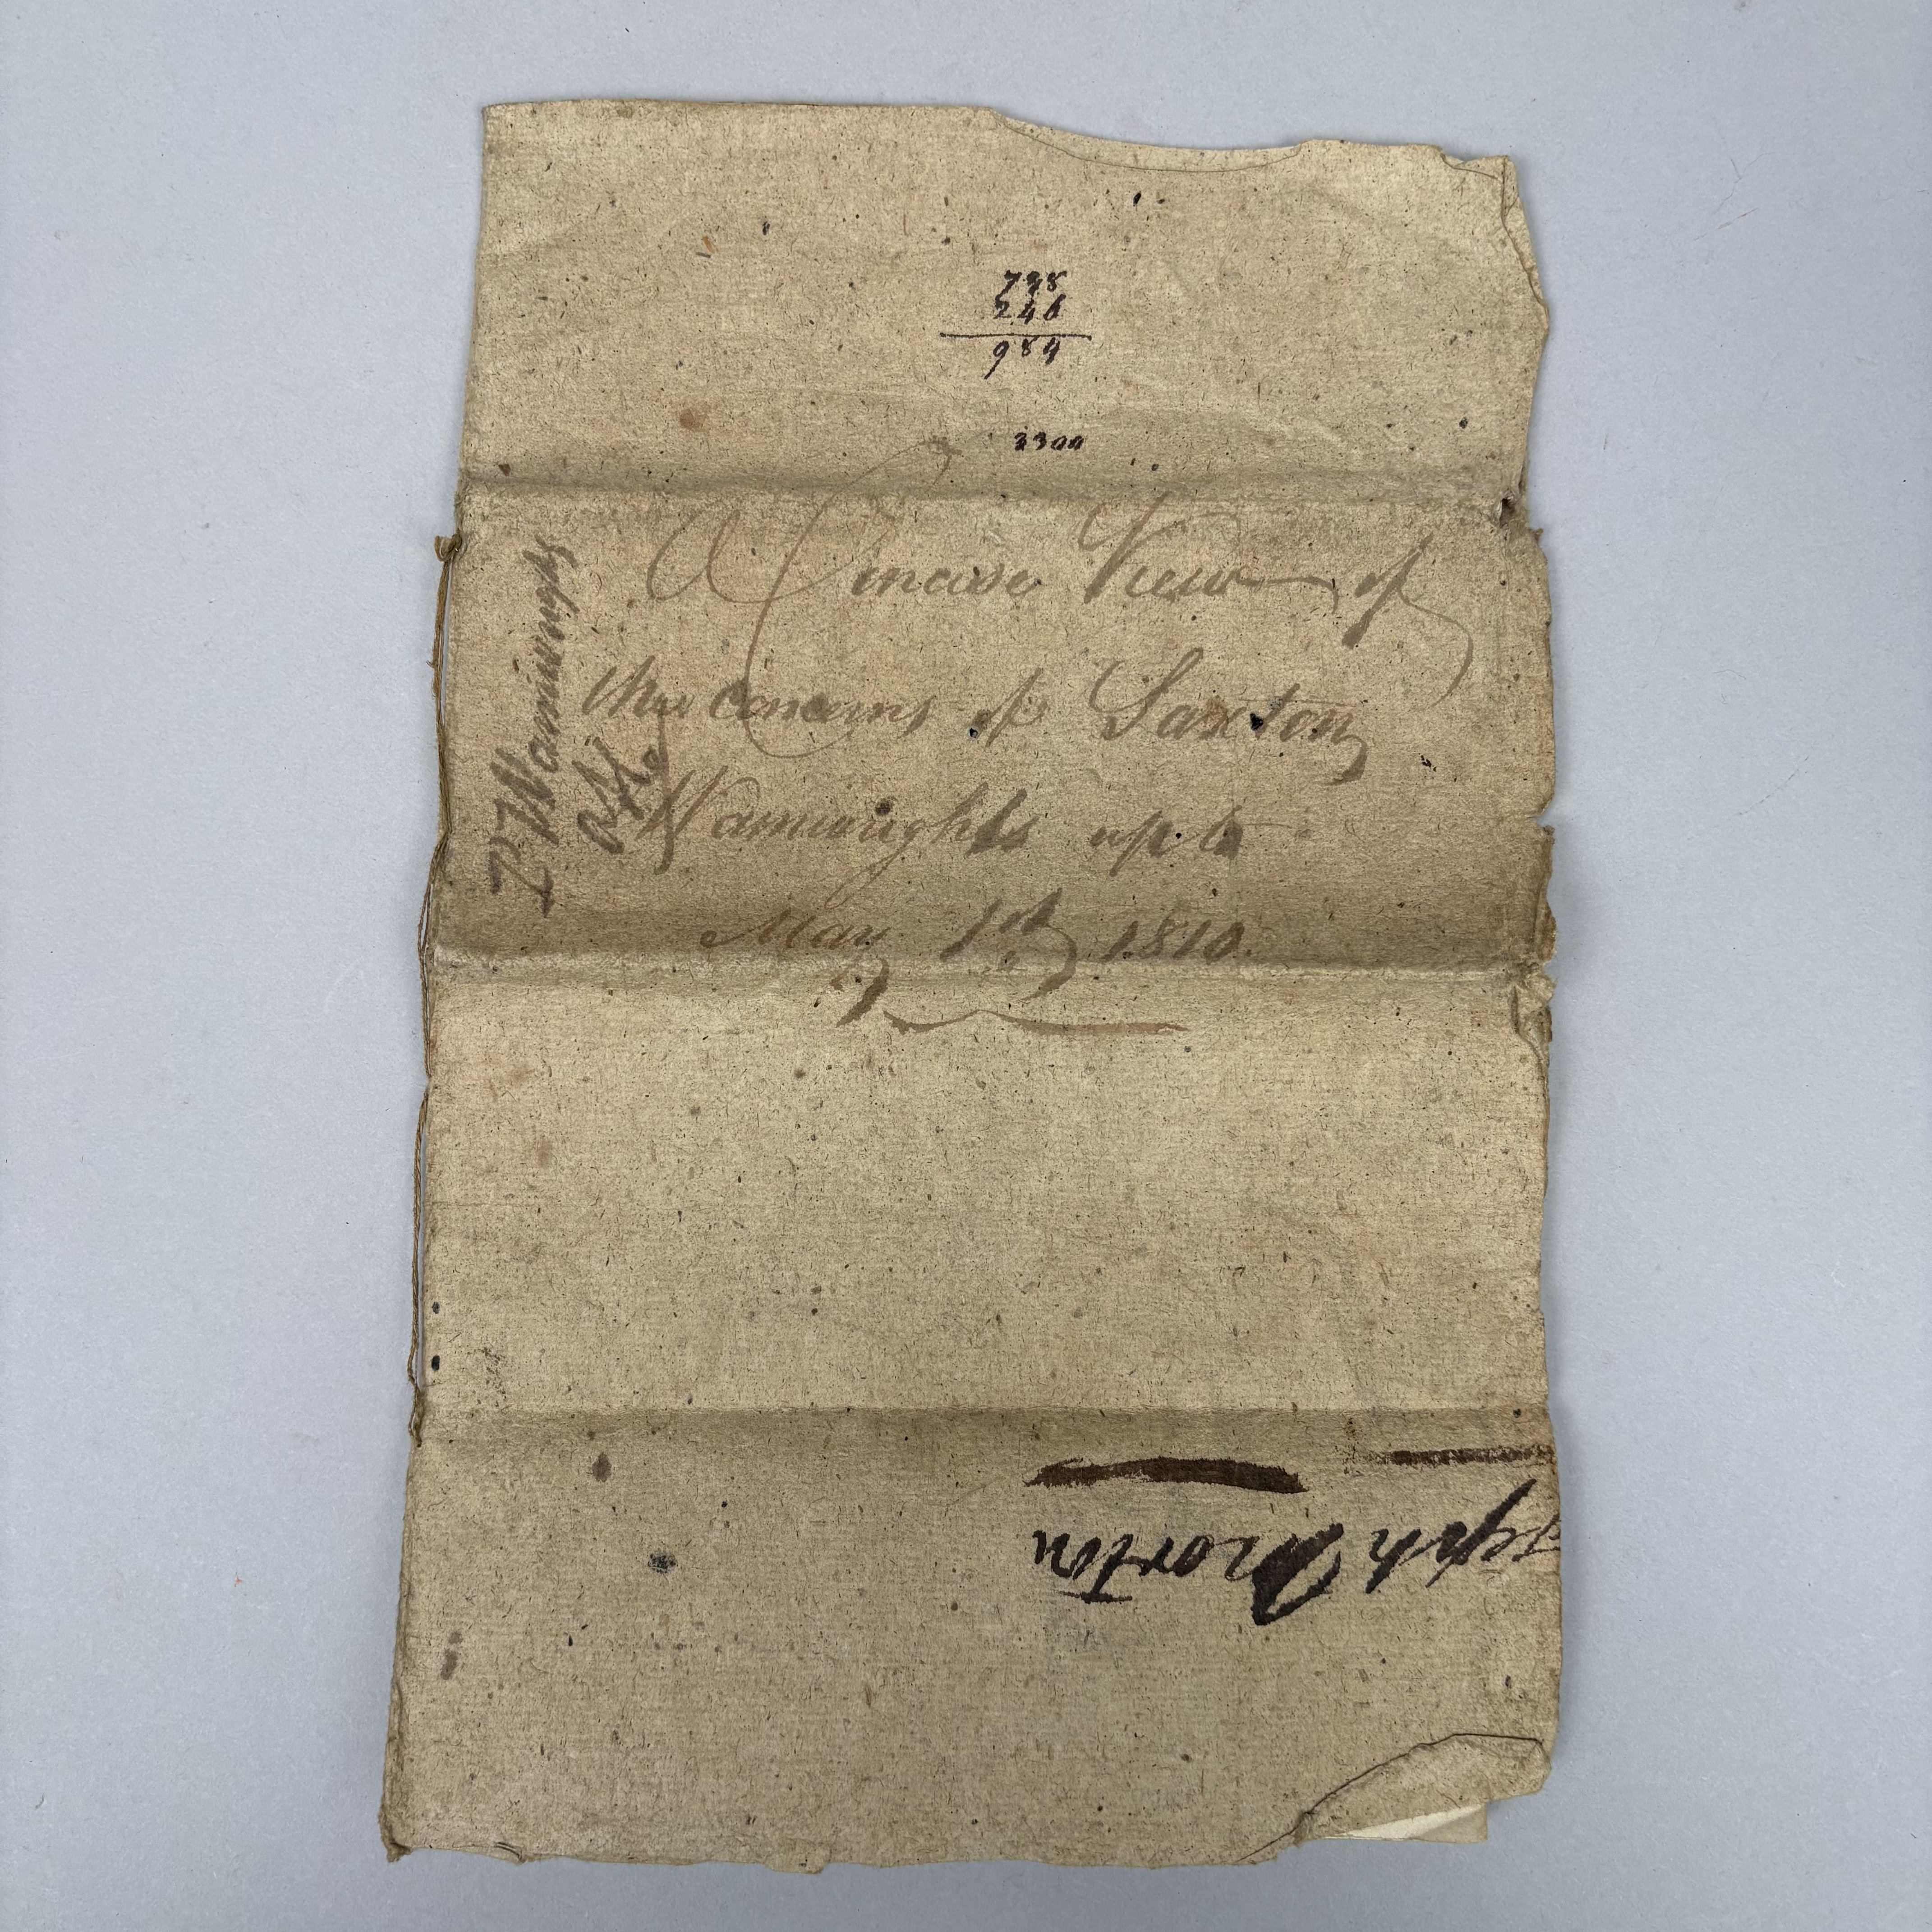 738
246
984
3300
A Concise View of
the concerns of Saxton
Wainwrights up to
May 1st 1810.
Wainwrights
Joseph Morton